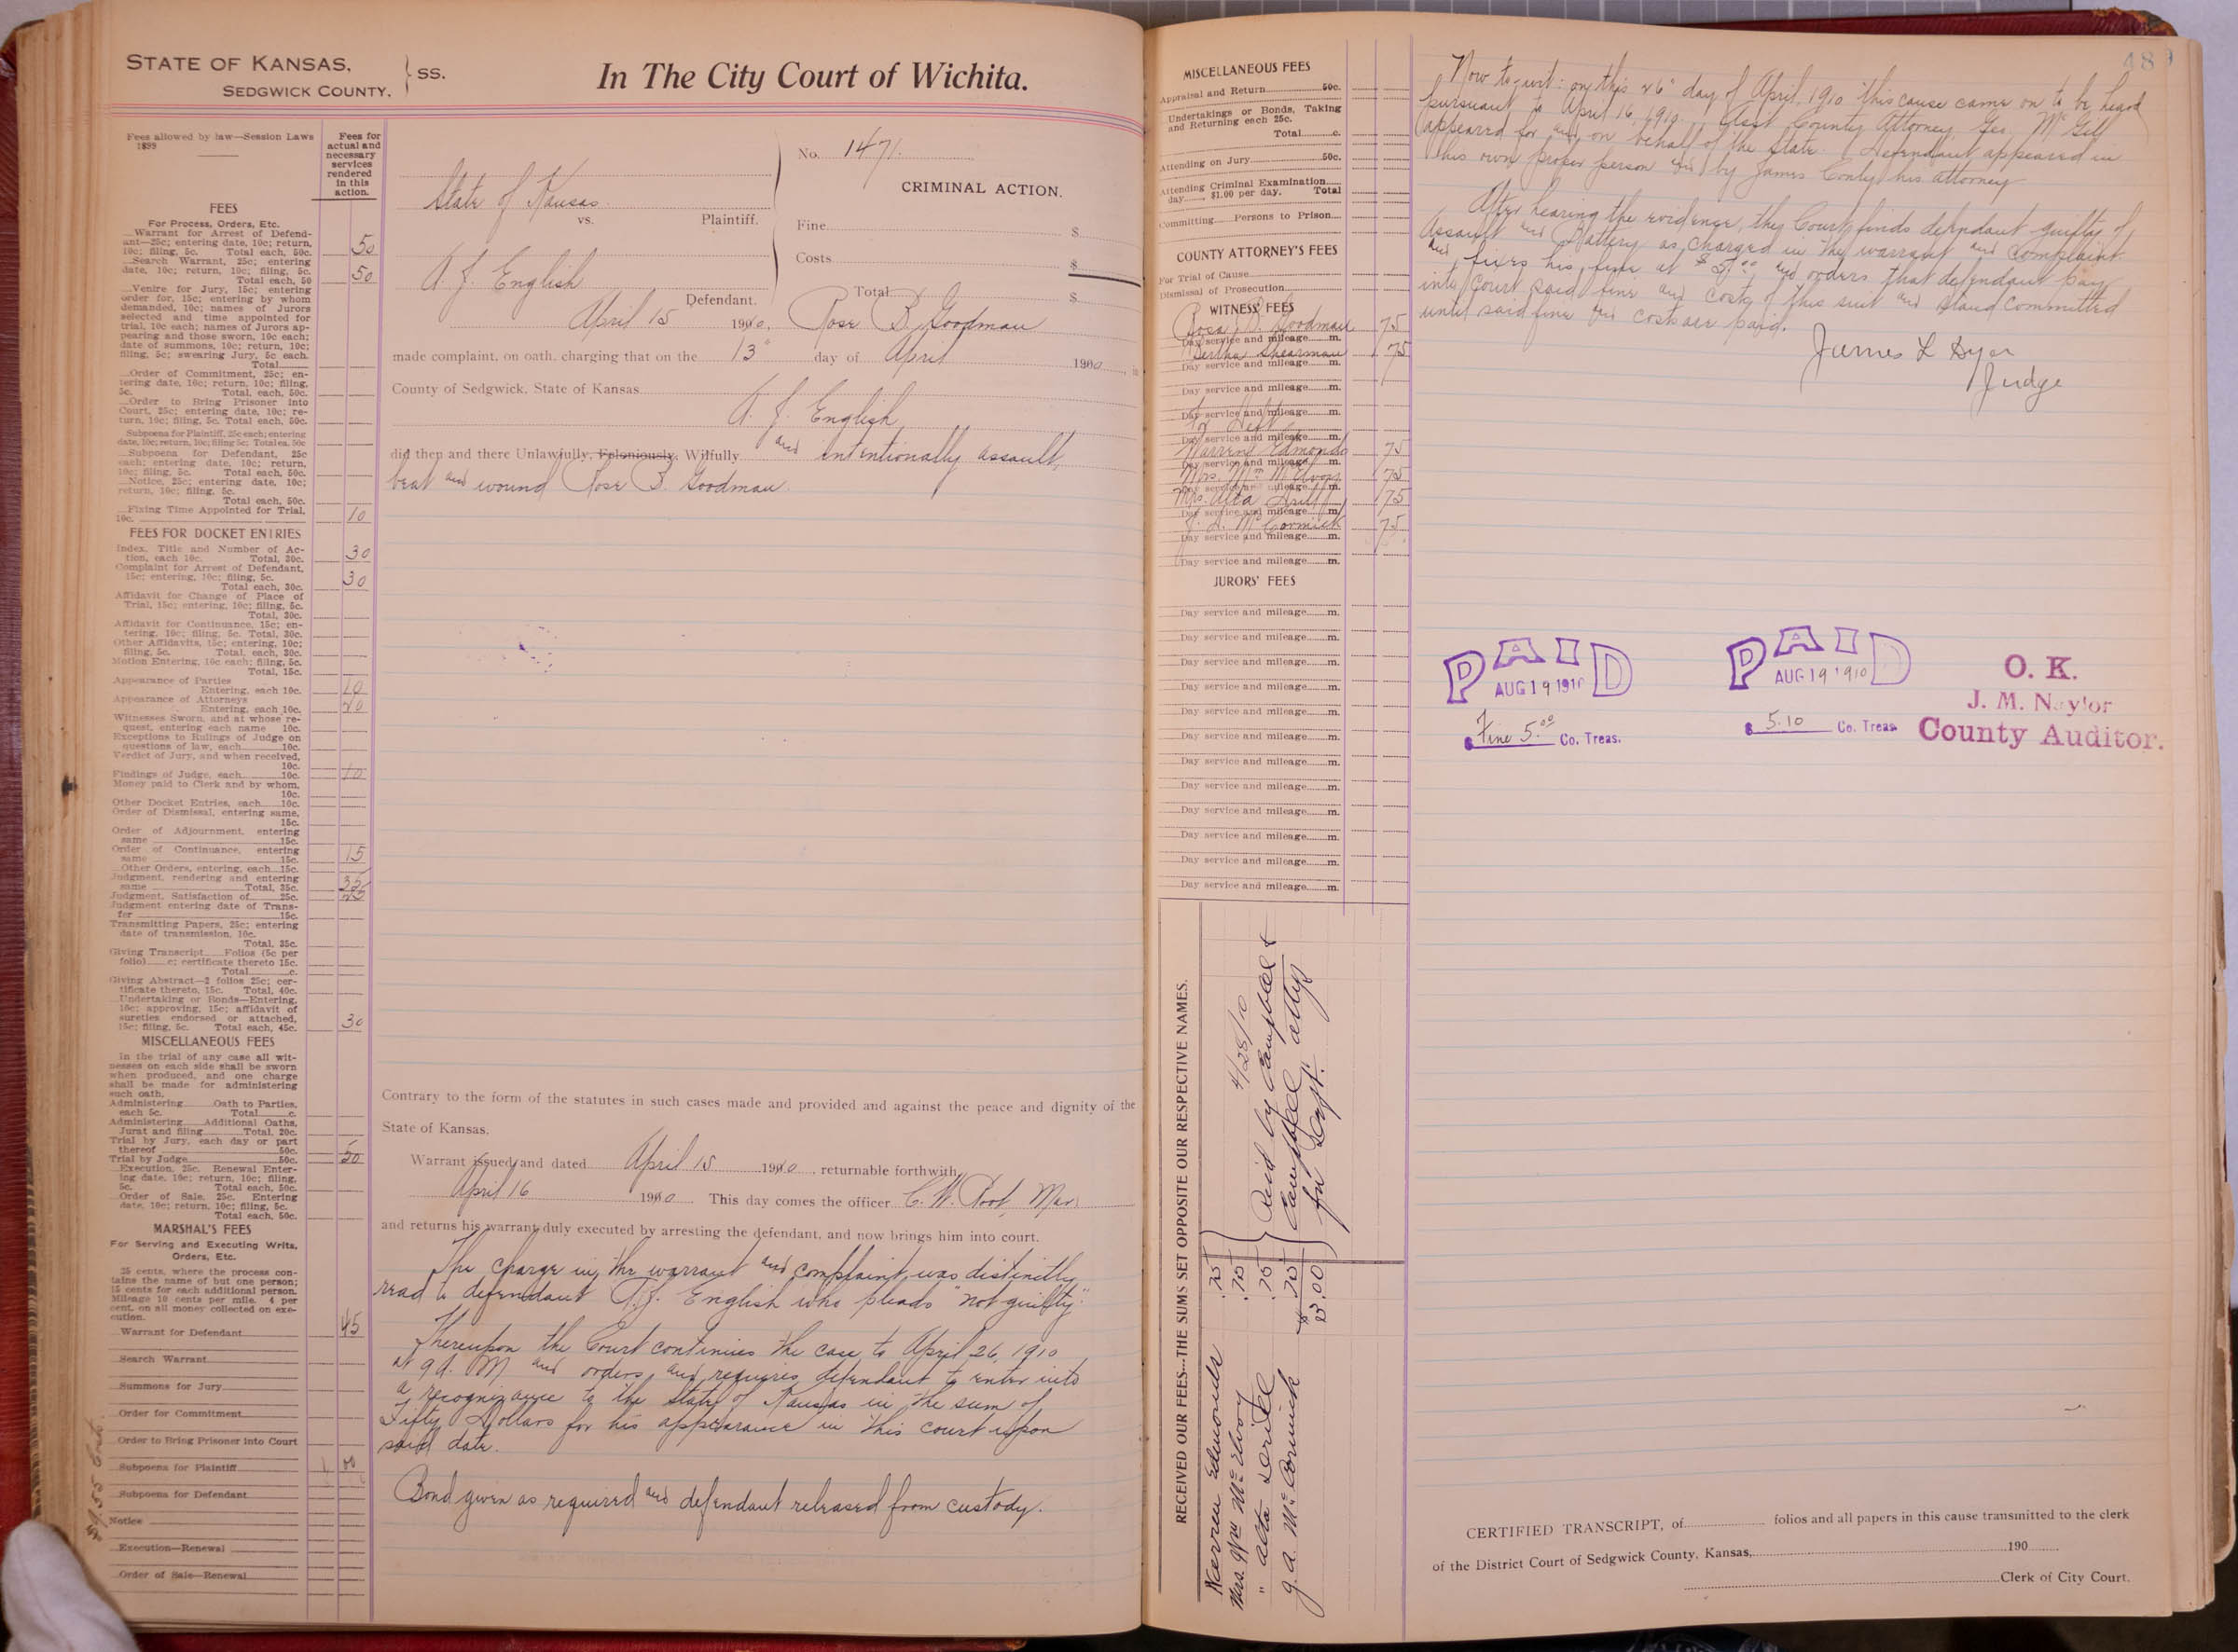 STATE OF KANSAS,
SEDGWICK COUNTY.
} SS.
In The City Court of Wichita.
Fees allowed by law—Session Laws
1899
Fees for
actual and
necessary
services
rendered
in this
action.
FEES
For Process, Orders, Etc.
Warrant for Arrest of Defend-
ant—25c; entering date, 10c; return,
10c; filing, 5c. Total each, 50c. 50
Search Warrant, 25c; entering
date, 10c; return, 10c; filing, 5c.
Total each, 50 50
Venire for Jury, 15c; entering
order for, 15c; entering by whom
demanded, 10c; names of Jurors
selected and time appointed for
trial, 10c each; names of Jurors ap-
pearing and those sworn, 10c each;
date of summons, 10c; return, 10c;
filing, 5c; swearing Jury, 5c each.
Total
Order of Commitment, 25c; en-
tering date, 10c; return, 10c; filing,
5c. Total, each, 50c.
Order to Bring Prisoner into
Court, 25c; entering date, 10c; re-
turn, 10c; filing, 5c. Total each, 50c.
Subpoena for Plaintiff, 25c each; entering
date, 10c; return, 10c; filing 5c; Total ea. 50c
Subpoena for Defendant, 25c
each; entering date, 10c; return,
10c; filing, 5c. Total each, 50c.
Notice, 25c; entering date, 10c;
return, 10c; filing, 5c.
Total each, 50c.
Fixing Time Appointed for Trial,
10c. 10
FEES FOR DOCKET ENTRIES
Index, Title and Number of Ac-
tion, each 10c. Total, 30c. 30
Complaint for Arrest of Defendant,
15c; entering, 10c; filing, 5c.
Total each, 30c. 30
Affidavit for Change of Place of
Trial, 15c; entering, 10c; filing, 5c.
Total, 30c.
Affidavit for Continuance, 15c; en-
tering, 10c; filing, 5c. Total, 30c.
Other Affidavits, 15c; entering, 10c;
filing, 5c. Total, each, 30c.
Motion Entering, 10c each; filing, 5c.
Total, 15c.
Appearance of Parties
Entering, each 10c. 10
Appearance of Attorneys
Entering, each 10c. 20
Witnesses Sworn, and at whose re-
quest, entering each name 10c.
Exceptions to Rulings of Judge on
questions of law, each 10c.
Verdict of Jury, and when received,
10c.
Findings of Judge, each 10c. 10
Money paid to Clerk and by whom,
10c.
Other Docket Entries, each 10c.
Order of Dismissal, entering same,
15c.
Order of Adjournment, entering
same 15c.
Order of Continuance, entering
same 15c. 15
Other Orders, entering, each 15c.
Judgment, rendering and entering
same Total, 35c. 35
Judgment, Satisfaction of 25c. 25
Judgment entering date of Trans-
fer 15c.
Transmitting Papers, 25c; entering
date of transmission, 10c.
Total, 35c.
Giving Transcript Folios (5c per
folio) c; certificate thereto 15c.
Total c.
Giving Abstract—2 folios 25c; cer-
tificate thereto, 15c. Total, 40c.
Undertaking or Bonds—Entering,
10c; approving, 15c; affidavit of
sureties endorsed or attached,
15c; filing, 5c. Total each, 45c. 30
MISCELLANEOUS FEES
In the trial of any case all wit-
nesses on each side shall be sworn
when produced, and one charge
shall be made for administering
such oath.
Administering Oath to Parties,
each 5c. Total c.
Administering Additional Oaths,
Jurat and filing Total, 20c.
Trial by Jury, each day or part
thereof 50c.
Trial by Judge 50c. 50
Execution, 25c. Renewal Enter-
ing date, 10c; return, 10c; filing,
5c. Total each, 50c.
Order of Sale, 25c. Entering
date, 10c; return, 10c; filing, 5c.
Total each, 50c.
MARSHAL'S FEES
For Serving and Executing Writs,
Orders, Etc.
25 cents, where the process con-
tains the name of but one person;
15 cents for each additional person.
Mileage 10 cents per mile. 4 per
cent. on all money collected on exe-
cution.
Warrant for Defendant 45
Search Warrant
Summons for Jury
Order for Commitment
Order to Bring Prisoner into Court
Subpoena for Plaintiff 1 00
Subpoena for Defendant
Notice
Execution—Renewal
Order of Sale—Renewal
No. 1471.
CRIMINAL ACTION.
State of Kansas
vs. Plaintiff.
A. J. English
Defendant.
Fine $
Costs $
Total $
April 15 1910, Rose B. Goodman
made complaint, on oath, charging that on the 13" day of April 1910, in
County of Sedgwick, State of Kansas
A. J. English
did then and there Unlawfully, Feloniously, Wilfully and intentionally assault,
beat and wound Rose B. Goodman.
Contrary to the form of the statutes in such cases made and provided and against the peace and dignity of the
State of Kansas.
Warrant issued and dated April 15 1910, returnable forthwith
April 16 1910 This day comes the officer C. W. Root, Mar.
and returns his warrant duly executed by arresting the defendant, and now brings him into court.
The charge in the warrant and complaint was distinctly
read to defendant A. J. English who pleads "not guilty."
Thereupon the Court continues the case to April 26, 1910
at 9 A. M. and orders and requires defendant to enter into
a recognizance to the State of Kansas in the sum of
Fifty Dollars for his appearance in this court upon
said date.
Bond given as required and defendant released from custody.
MISCELLANEOUS FEES
Appraisal and Return 50c.
Undertakings or Bonds, Taking
and Returning each 25c.
Total c.
Attending on Jury 50c.
Attending Criminal Examination
day , $1.00 per day. Total
Committing Persons to Prison
COUNTY ATTORNEY'S FEES
For Trial of Cause
Dismissal of Prosecution
WITNESS FEES
Rosa B. Goodman 75
Day service and mileage m.
Bertha Shearman 75
Day service and mileage m.
Day service and mileage m.
Day service and mileage m.
For Deft
Day service and mileage m.
Warren Edmonds 75
Day service and mileage m.
Mrs. Wm McElvoy 75
Day service and mileage m.
Mrs. Alta 75
Day service and mileage m.
J. A. McCormick 75
Day service and mileage m.
Day service and mileage m.
JURORS' FEES
Day service and mileage m.
Day service and mileage m.
Day service and mileage m.
Day service and mileage m.
Day service and mileage m.
Day service and mileage m.
Day service and mileage m.
Day service and mileage m.
Day service and mileage m.
Day service and mileage m.
Day service and mileage m.
Day service and mileage m.
RECEIVED OUR FEES---THE SUMS SET OPPOSITE OUR RESPECTIVE NAMES.
Warren Edmonds .75
Mrs. Wm McElvoy .75 4/28/10
" Alta .75 Paid by Campbell &
J. A. McCormick .75 Campbell attys
$3.00 for Deft.
489
Now to-wit: on this 26" day of April, 1910 this cause came on to be heard
pursuant to April 16, 1910. Asst County Attorney Geo. McGill
appeared for and on behalf of the State. Defendant appeared in
his own proper person and by James Conly his attorney
After hearing the evidence, the Court finds defendant guilty of
Assault and Battery as charged in the warrant and complaint
and fixes his fine at $5.00 and orders that defendant pay
into Court said fine and costs of this suit and stand committed
until said fine and costs are paid.
James L Dyer
Judge
PAID
AUG 19 1910
$ Fine 5.00 Co. Treas.
PAID
AUG 19 1910
$ 5.10 Co. Treas.
O. K.
J. M. Naylor
County Auditor.
CERTIFIED TRANSCRIPT, of folios and all papers in this cause transmitted to the clerk
of the District Court of Sedgwick County, Kansas, 190
Clerk of City Court.